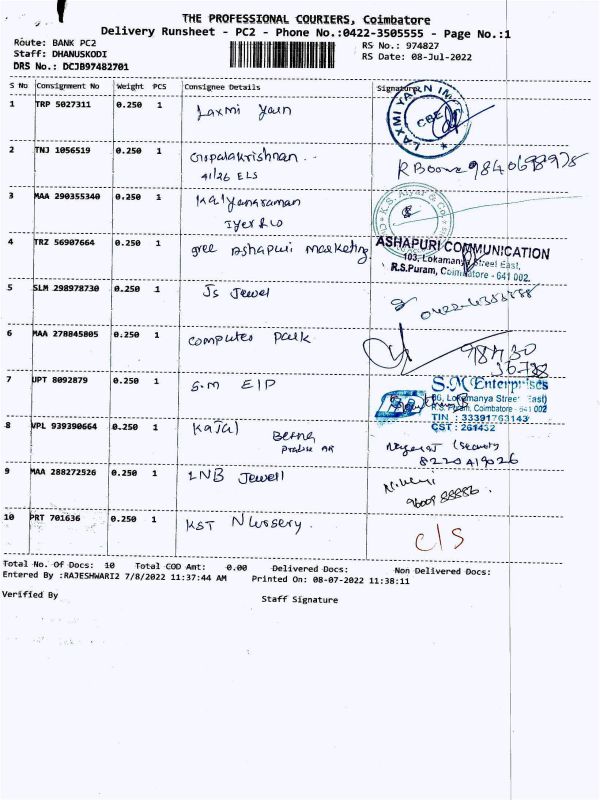 THE PROFESSIONAL COURIERS, Coimbatore
Delivery Runsheet - PC2 - Phone No.:0422-3505555 - Page No.:1
Route: BANK PC2
Staff: DHANUSKODI
DRS No.: DCJB97482701
RS No.: 974827
RS Date: 08-Jul-2022
S No Consignment No Weight PCS Consignee Details Signature
1 TRP 5027311 0.250 1 Laxmi Yarn
LAXMI YARN CBE
2 TNJ 1056519 0.250 1 Gopalakrishnan
41/26 ELS
3 MAA 290355340 0.250 1 Kalyanaraman
Iyer & co
K.S. Aiyar & Co
4 TRZ 56907664 0.250 1 gree Ashapuri marketing
ASHAPURI COMMUNICATION
103, Lokamanya Street East,
R.S.Puram, Coimbatore - 641 002.
5 SLM 298978730 0.250 1 Js Jewel
6 MAA 278845805 0.250 1 computer park
98430
7 UPT 8092879 0.250 1 S.M EIP
S.M Enterprises
86, Lokamanya Street East)
R.S. Puram, Coimbatore - 641 002
TIN : 33391763143
CST : 261432
8 VPL 939390664 0.250 1 Kajal
(Security
8220419026
9 MAA 288272526 0.250 1 LNB Jewell
9600988886.
10 PRT 701636 0.250 1 KST Nursery.
C/S
Total No. Of Docs: 10 Total COD Amt: 0.00 Delivered Docs: Non Delivered Docs:
Entered By :RAJESHWARI2 7/8/2022 11:37:44 AM Printed On: 08-07-2022 11:38:11
Verified By
Staff Signature